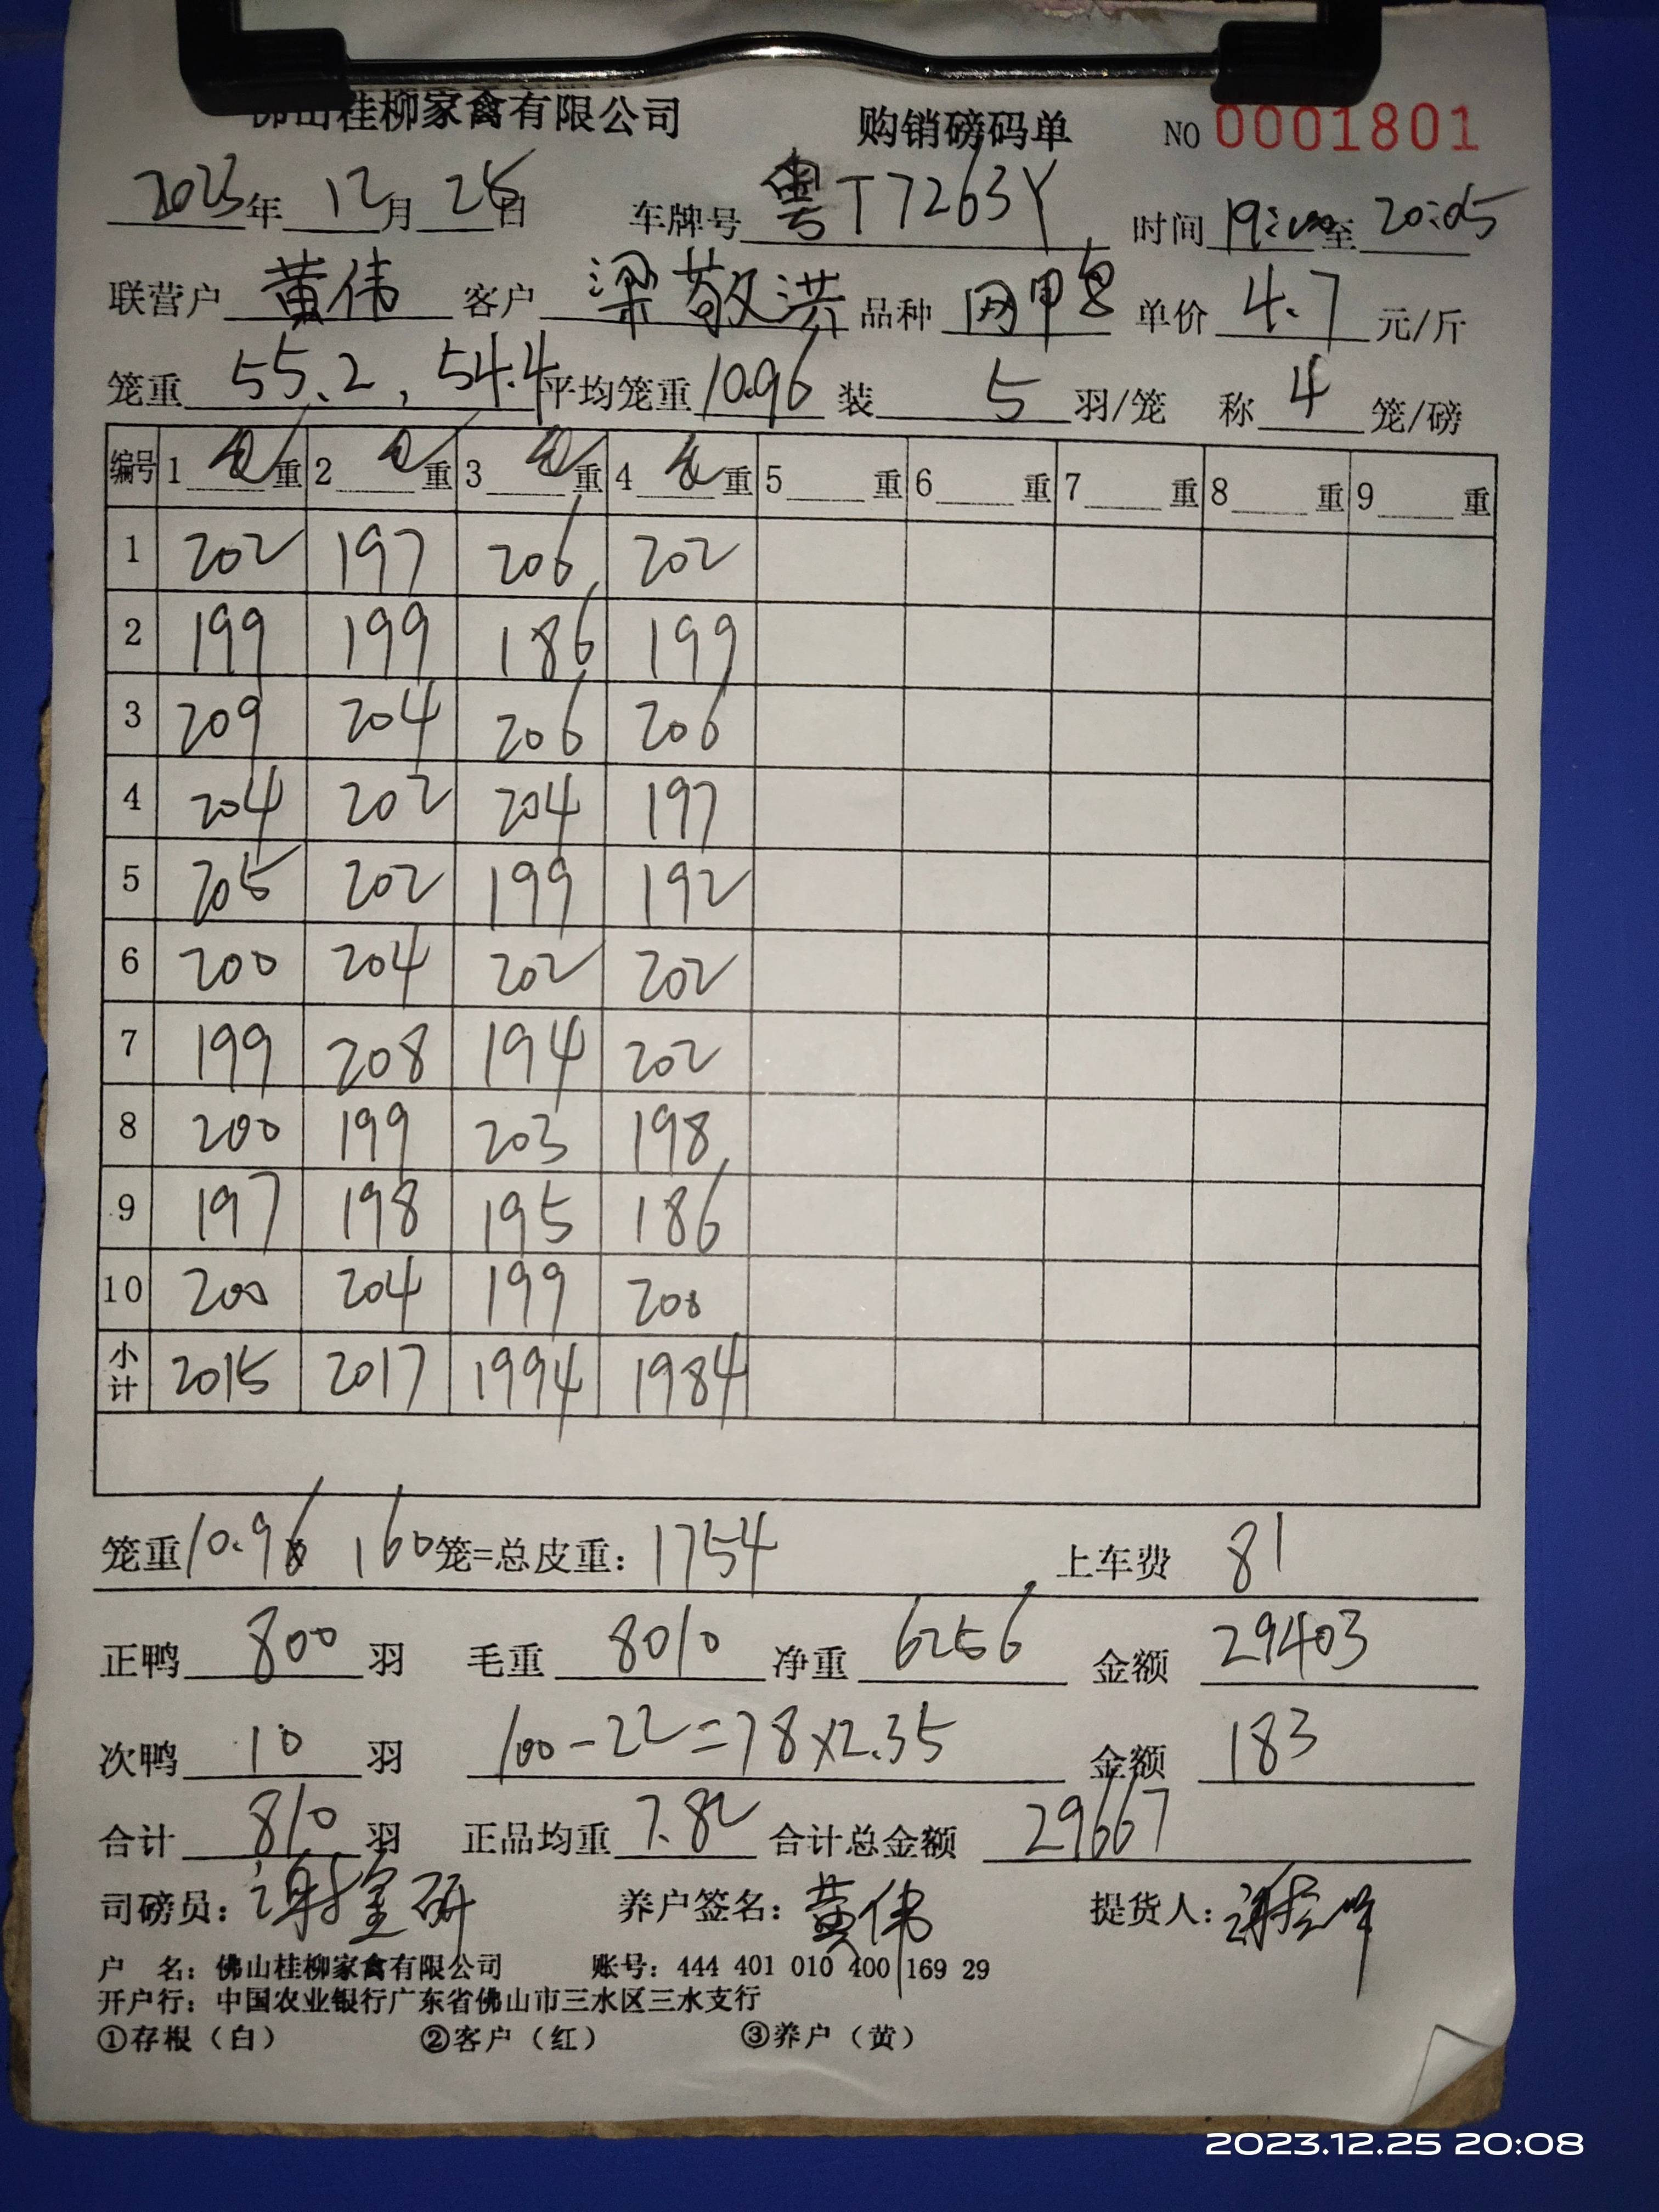 佛山桂柳家禽有限公司 购销磅码单 NO 0001801
2023年 12月 25日 车牌号 粤T7263Y 时间 19:00至 20:05
联营户 黄伟 客户 梁敬洪 品种 网甲 单价 4.7 元/斤
笼重 55.2, 54.4 平均笼重 10.96 装 5 羽/笼 称 4 笼/磅
编号 1 毛重 2 毛重 3 毛重 4 毛重 5 重 6 重 7 重 8 重 9 重
1 202 197 206 202
2 199 199 186 199
3 209 204 206 206
4 204 202 204 197
5 205 202 199 192
6 200 204 202 202
7 199 208 194 202
8 200 199 203 198
9 197 198 195 186
10 200 204 199 200
小计 2015 2017 1994 1984
笼重 10.96 160笼=总皮重: 1754 上车费 81
正鸭 800 羽 毛重 8010 净重 6256 金额 29403
次鸭 10 羽 100-22=78×2.35 金额 183
合计 810 羽 正品均重 7.82 合计总金额 29667
司磅员: 谢 研 养户签名: 黄伟 提货人: 谢
户 名: 佛山桂柳家禽有限公司 账号: 444 401 010 400 169 29
开户行: 中国农业银行广东省佛山市三水区三水支行
①存根（白） ②客户（红） ③养户（黄）
2023.12.25 20:08